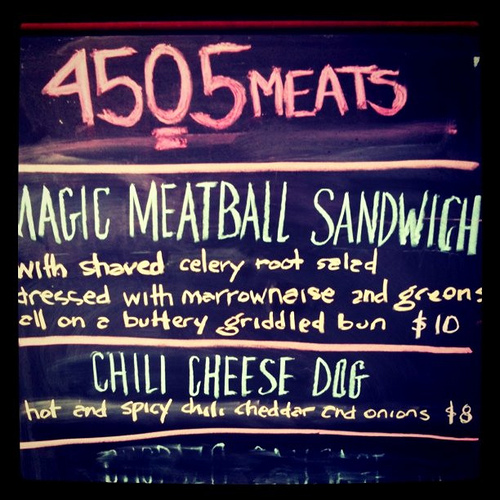 4505 MEATS
MAGIC MEATBALL SANDWICH
with shaved celery root salad
dressed with marrownaise and greens
all on a buttery griddled bun $10
CHILI CHEESE DOG
hot and spicy chili cheddar and onions $8